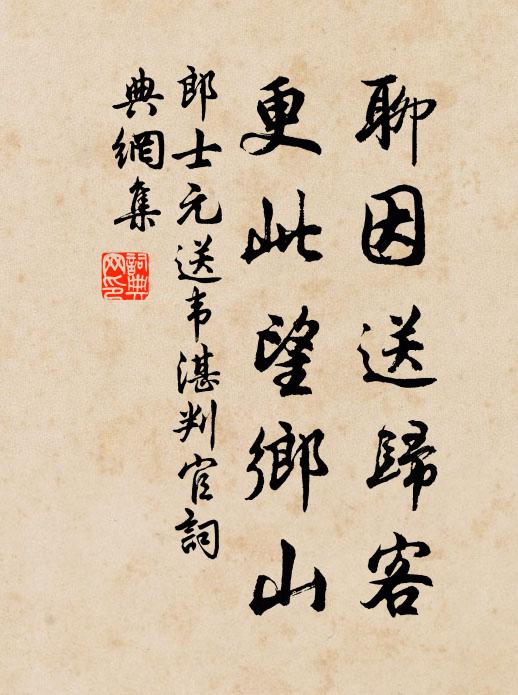 聊因送歸客
更此望鄉山
郎士元送韦湛判官詞
典網集
詞典网印